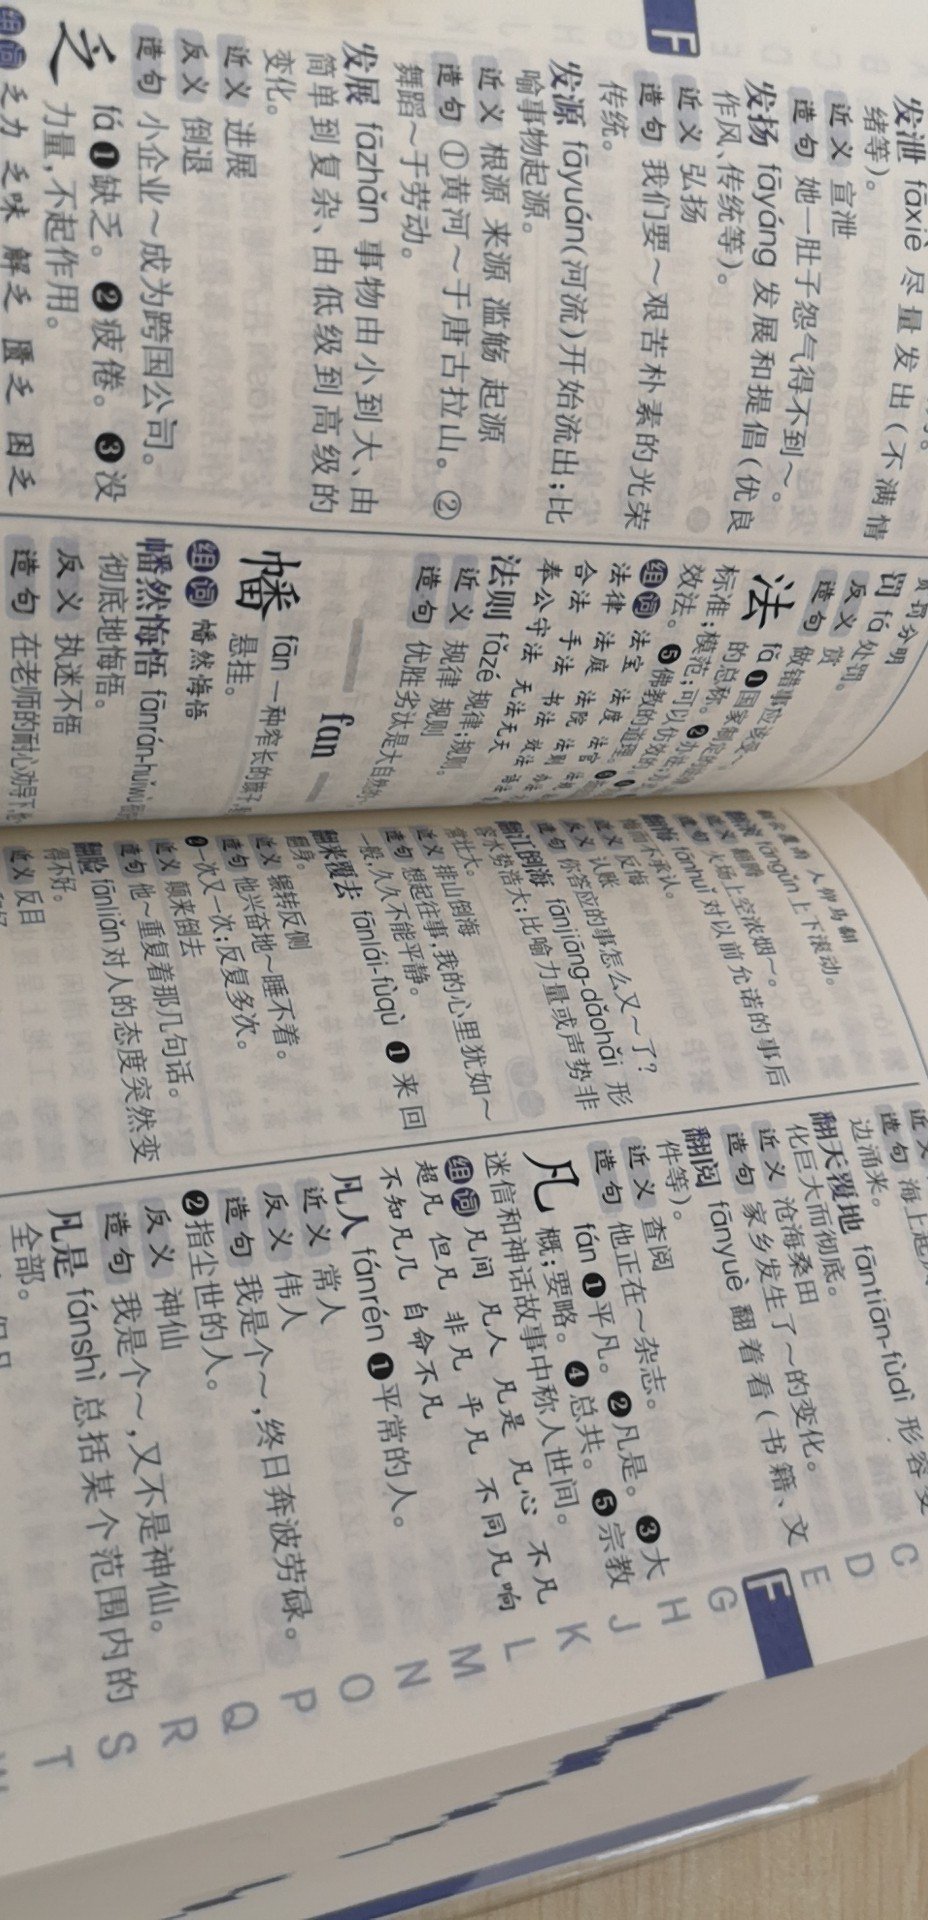 F
发泄 fāxiè 尽量发出(不满情
绪等)。
近义 宣泄
造句 她一肚子怨气得不到～。
发扬 fāyáng 发展和提倡(优良
作风、传统等)。
近义 弘扬
造句 我们要～艰苦朴素的光荣
传统。
发源 fāyuán(河流)开始流出;比
喻事物起源。
近义 根源 来源 滥觞 起源
造句 ①黄河～于唐古拉山。②
舞蹈～于劳动。
发展 fāzhǎn 事物由小到大、由
简单到复杂、由低级到高级的
变化。
近义 进展
反义 倒退
造句 小企业～成为跨国公司。
乏 fá ❶缺乏。❷疲倦。❸没
力量,不起作用。
组词 乏力 乏味 解乏 匮乏 困乏
罚 fá 处罚。
反义 赏
造句 做错事应该受
法 fǎ ❶国家制定
的总称。❷办法
标准;模范;可以仿效的
效法。❺佛教的道理。
组词 法宝 法度 法官
法律 法庭 法院 法则
合法 手法 书法 效法
奉公守法 无法无天
法则 fǎzé 规律;规则。
近义 规律 规则
造句 优胜劣汰是大自然的
fan
幡 fān 一种窄长的旗子,
悬挂。
组词 幡然悔悟
幡然悔悟 fānrán-huǐwù
彻底地悔悟。
反义 执迷不悟
造句 在老师的耐心劝导下,他
人仰马翻
翻滚 fāngǔn 上下滚动。
近义 翻腾
造句 火场上空浓烟～。
翻悔 fānhuǐ 对以前允诺的事后
悔而不承认。
近义 反悔
反义 认账
造句 你答应的事怎么又～了?
翻江倒海 fānjiāng-dǎohǎi 形
容水势浩大;比喻力量或声势非
常壮大。
近义 排山倒海
造句 想起往事,我的心里犹如～
一般,久久不能平静。
翻来覆去 fānlái-fùqù ❶来回
翻身。
近义 辗转反侧
造句 他兴奋地～睡不着。
❷一次又一次;反复多次。
近义 颠来倒去
造句 他～重复着那几句话。
翻脸 fānliǎn 对人的态度突然变
得不好。
近义 反目
近义
造句 海上起风
边涌来。
翻天覆地 fāntiān-fùdì 形容变
化巨大而彻底。
近义 沧海桑田
造句 家乡发生了～的变化。
翻阅 fānyuè 翻着看(书籍、文
件等)。
近义 查阅
造句 他正在～杂志。
凡 fán ❶平凡。❷凡是。❸大
概;要略。❹总共。❺宗教
迷信和神话故事中称人世间。
组词 凡间 凡人 凡是 凡心 不凡
超凡 但凡 非凡 平凡 不同凡响
不知凡几 自命不凡
凡人 fánrén ❶平常的人。
近义 常人
反义 伟人
造句 我是个～,终日奔波劳碌。
❷指尘世的人。
反义 神仙
造句 我是个～,又不是神仙。
凡是 fánshì 总括某个范围内的
全部。
C
D
E
F
G
H
J
K
L
M
N
O
P
Q
R
S
T